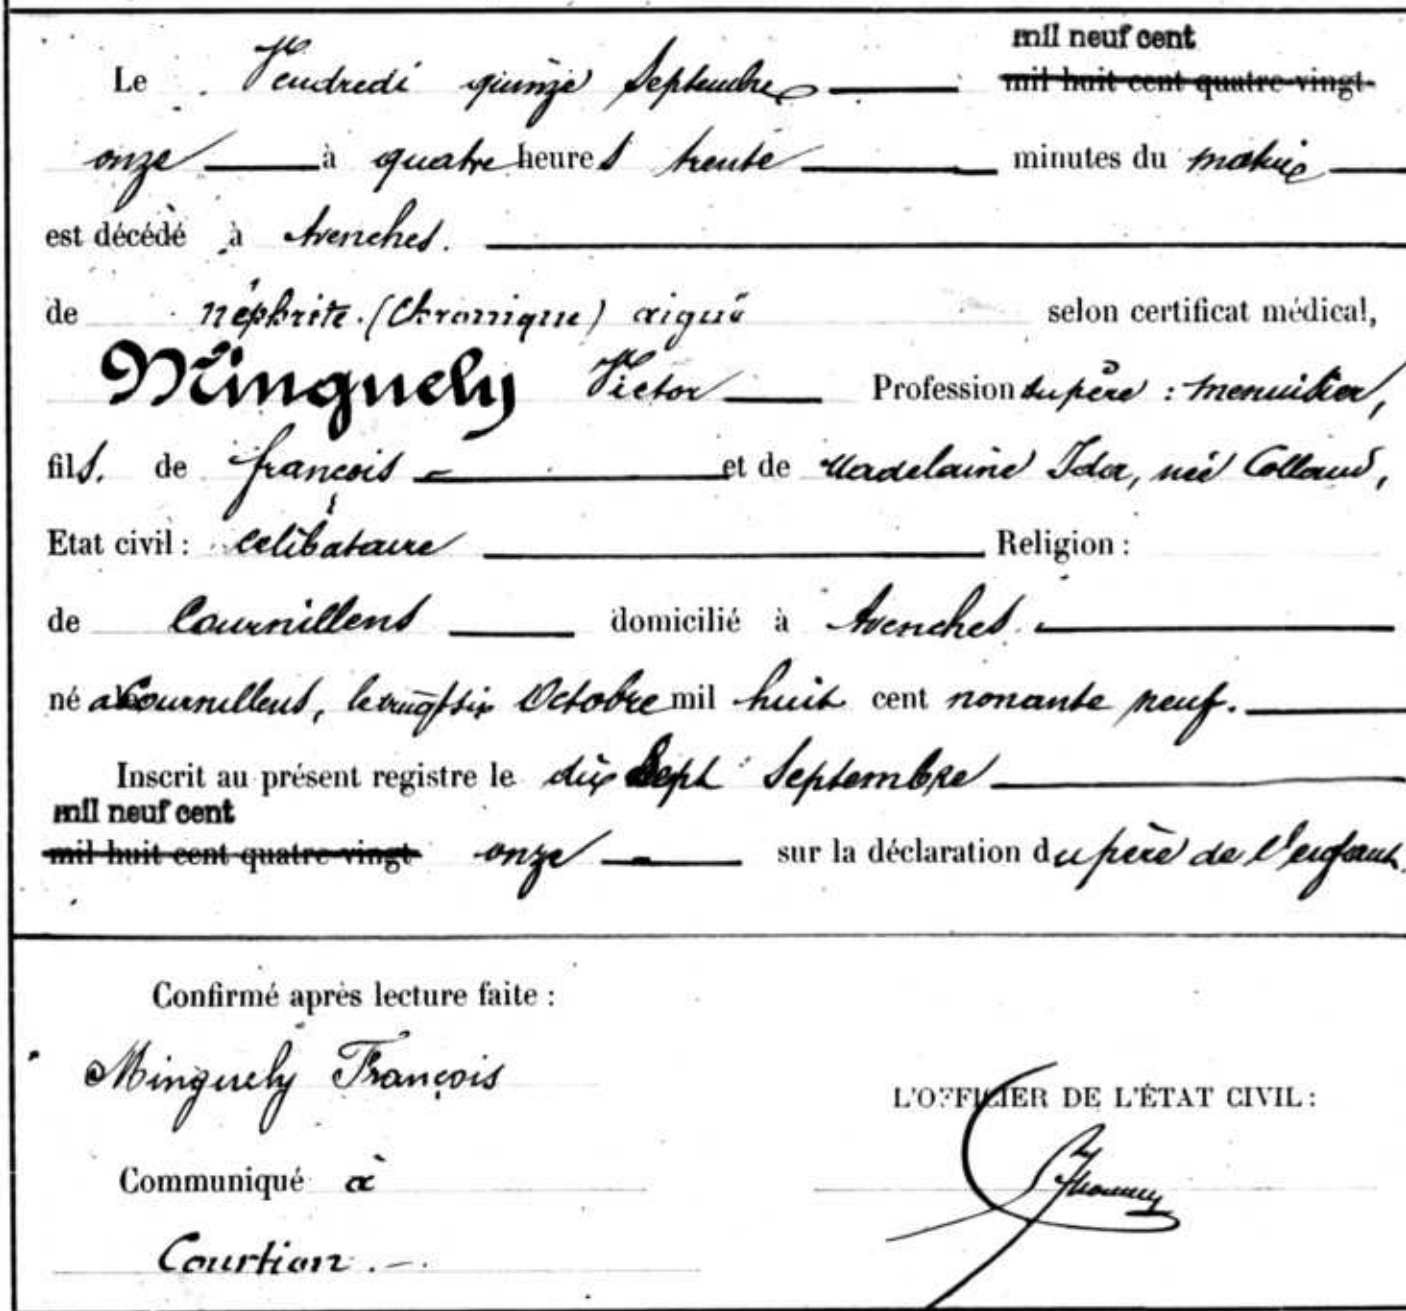 mil neuf cent
Le Vendredi quinze Septembre mil huit cent quatre-vingt-
onze à quatre heures trente minutes du matin
est décédé à Avenches.
de néphrite. (Chronique) aiguë selon certificat médical,
Minguely Victor Profession du père : menuisier,
fils. de françois et de Madelaine Ida, née Collaud,
Etat civil : célibataire Religion :
de Cournillens domicilié à Avenches.
né à Cournillens, le vingt six Octobre mil huit cent nonante neuf.
Inscrit au présent registre le dix Sept Septembre
mil neuf cent
mil huit cent quatre-vingt onze sur la déclaration du père de l'enfant.
Confirmé après lecture faite :
Minguely François
L'OFFICIER DE L'ÉTAT CIVIL :
Communiqué à
Courtion.